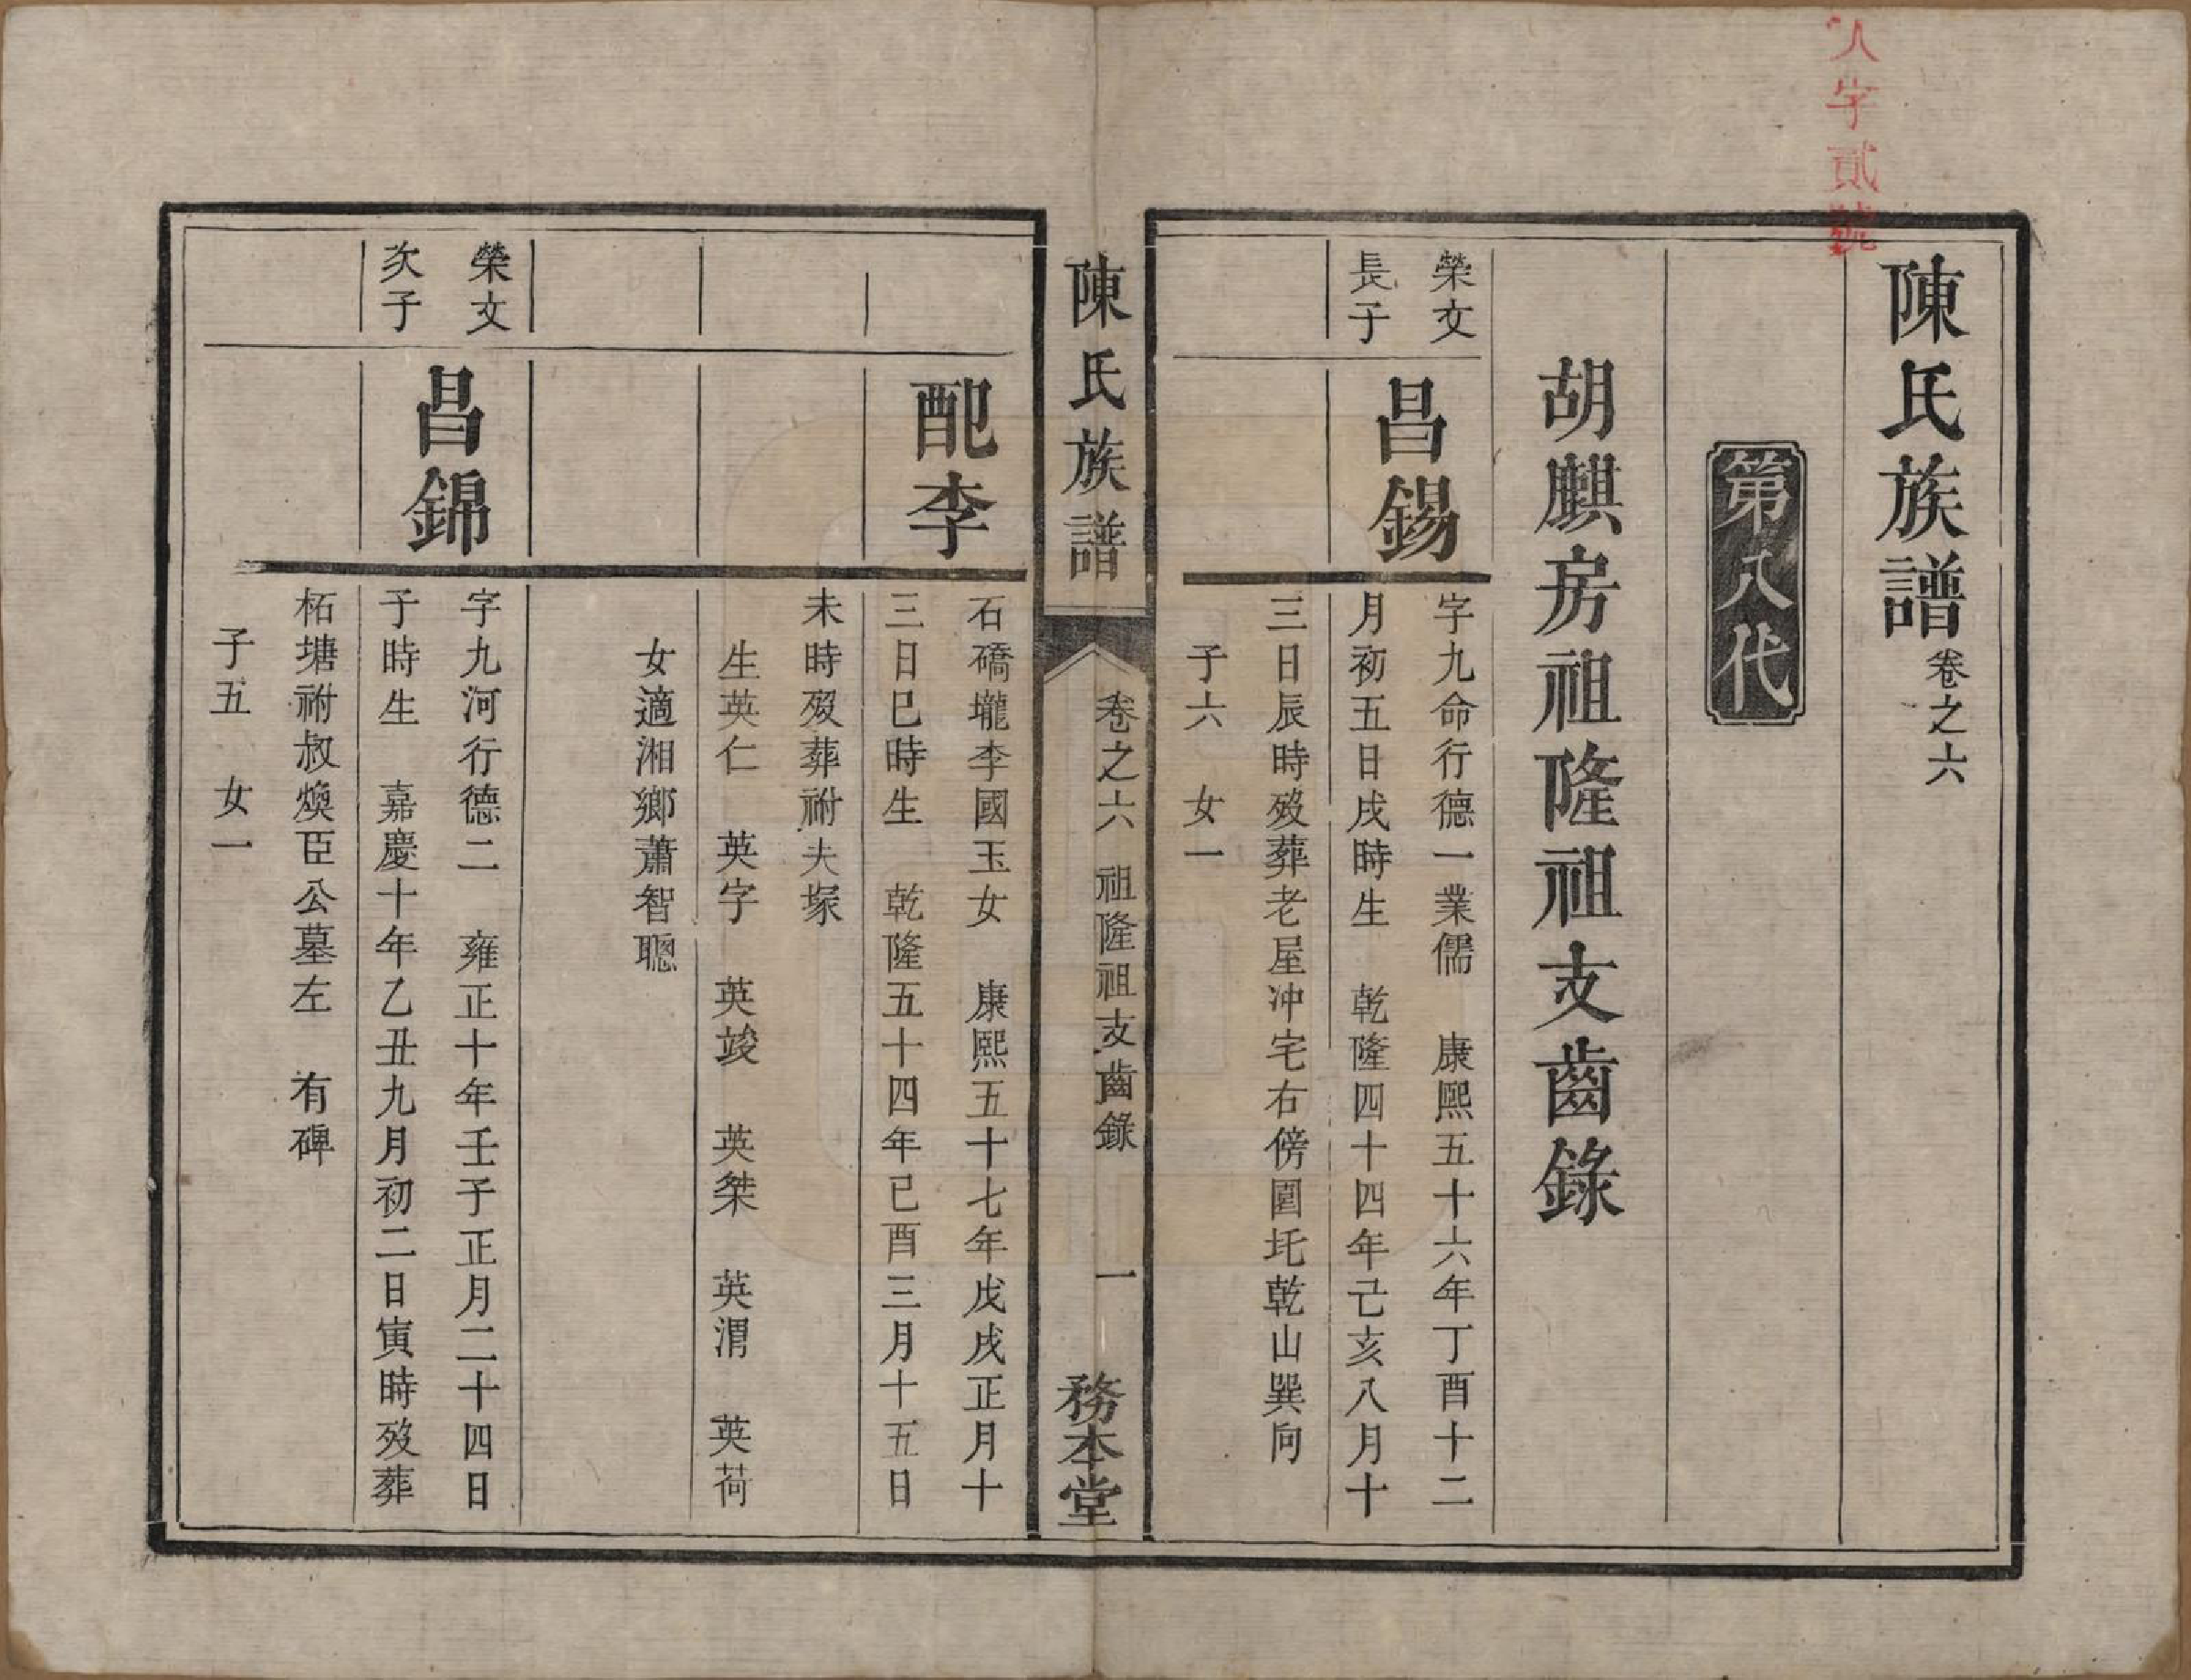 人字貳號
陳氏族譜卷之六
第八代
胡麒房祖隆祖支齒錄
榮文
長子
昌錫
字九命行德一業儒　康熙五十六年丁酉十二
月初五日戌時生　乾隆四十四年己亥八月十
三日辰時歿葬老屋冲宅右傍園圫乾山巽向
子六　女一
陳氏族譜
卷之六　祖隆祖支齒錄
一
務本堂
配李
石礄壠李國玉女　康熙五十七年戊戌正月十
三日巳時生　乾隆五十四年己酉三月十五日
未時歿葬祔夫塚
生英仁　英字　英竣　英桀　英渭　英荷
女適湘鄉蕭智聰
榮文
次子
昌錦
字九河行德二　雍正十年壬子正月二十四日
子時生　嘉慶十年乙丑九月初二日寅時歿葬
柘塘祔叔煥臣公墓左　有碑
子五　女一